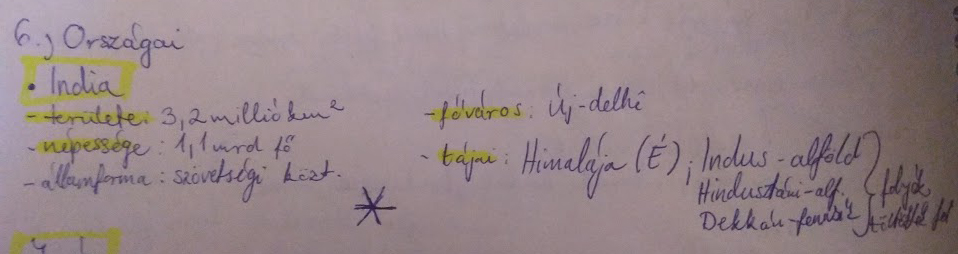 6.) Országai
• India
- területe: 3,2 millió km²
- népessége: 1,1 mrd fő
- államforma: szövetségi közt.
- főváros: Új-delhi
- tájai: Himalája (É), Indus-alföld
Hindusztáni-alf.
Dekkán-fennsík
folyók
töltötték fel